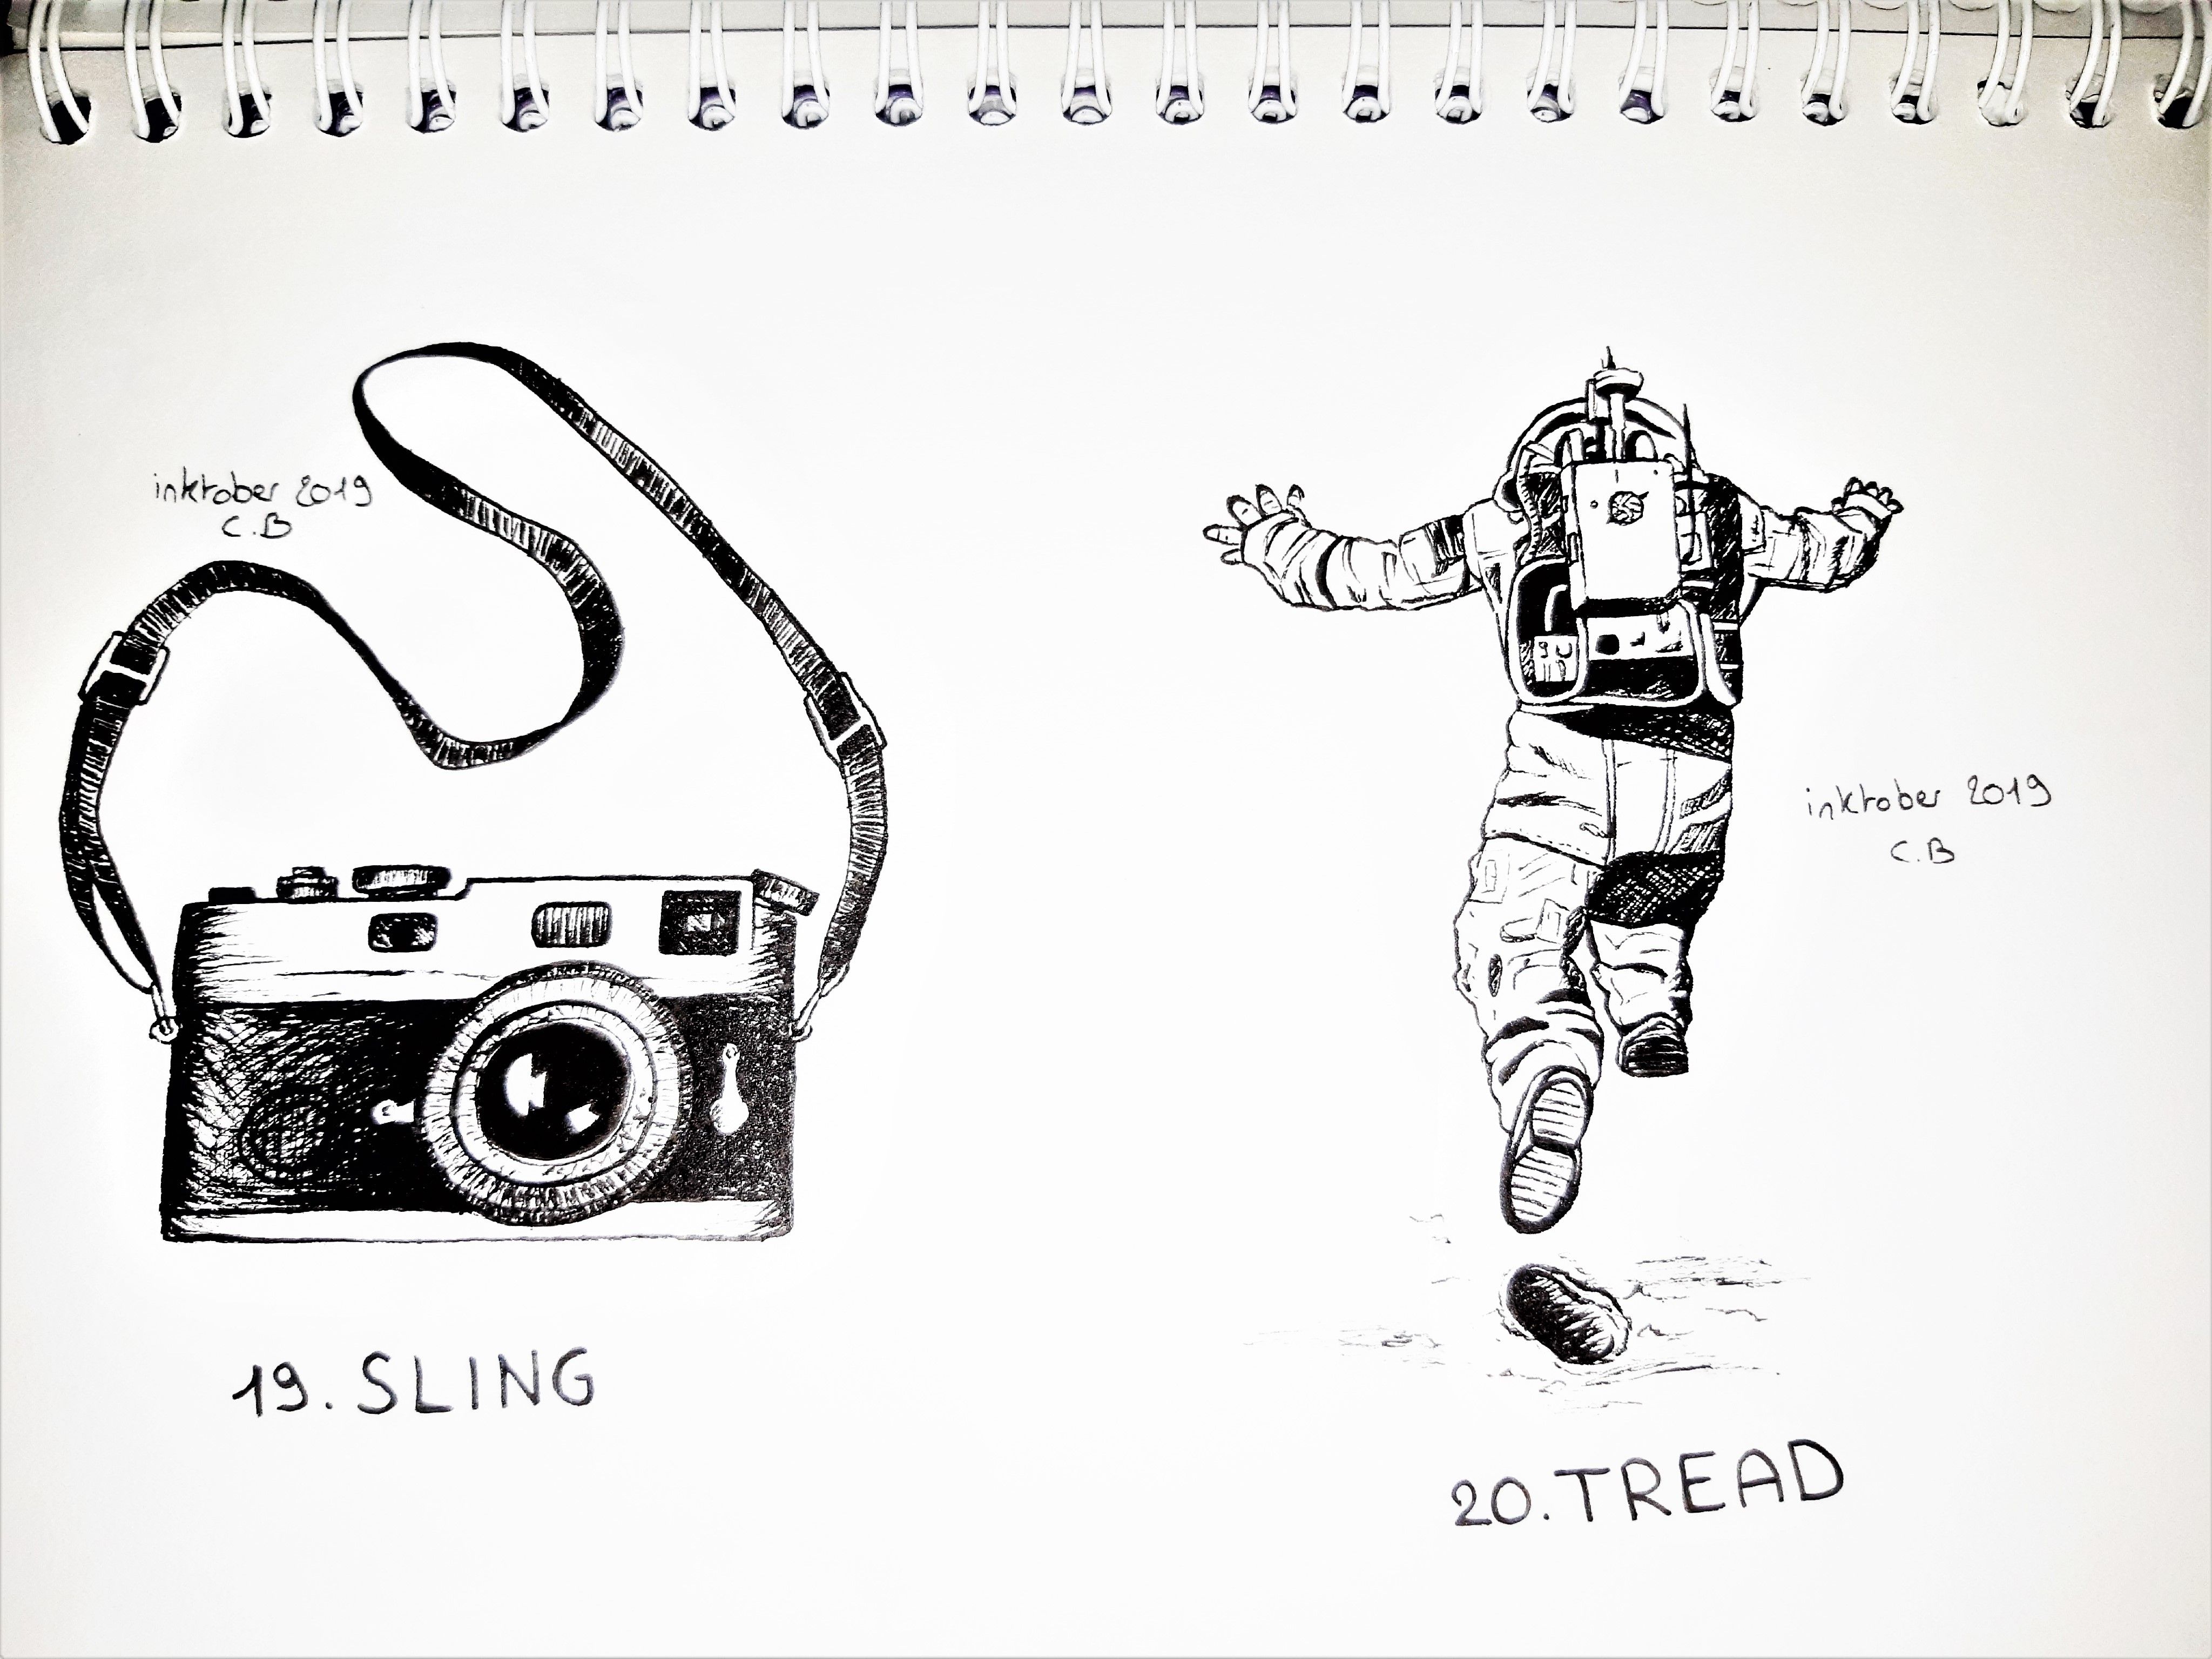 inktober 2019
C.B
19. SLING
inktober 2019
C.B
20. TREAD